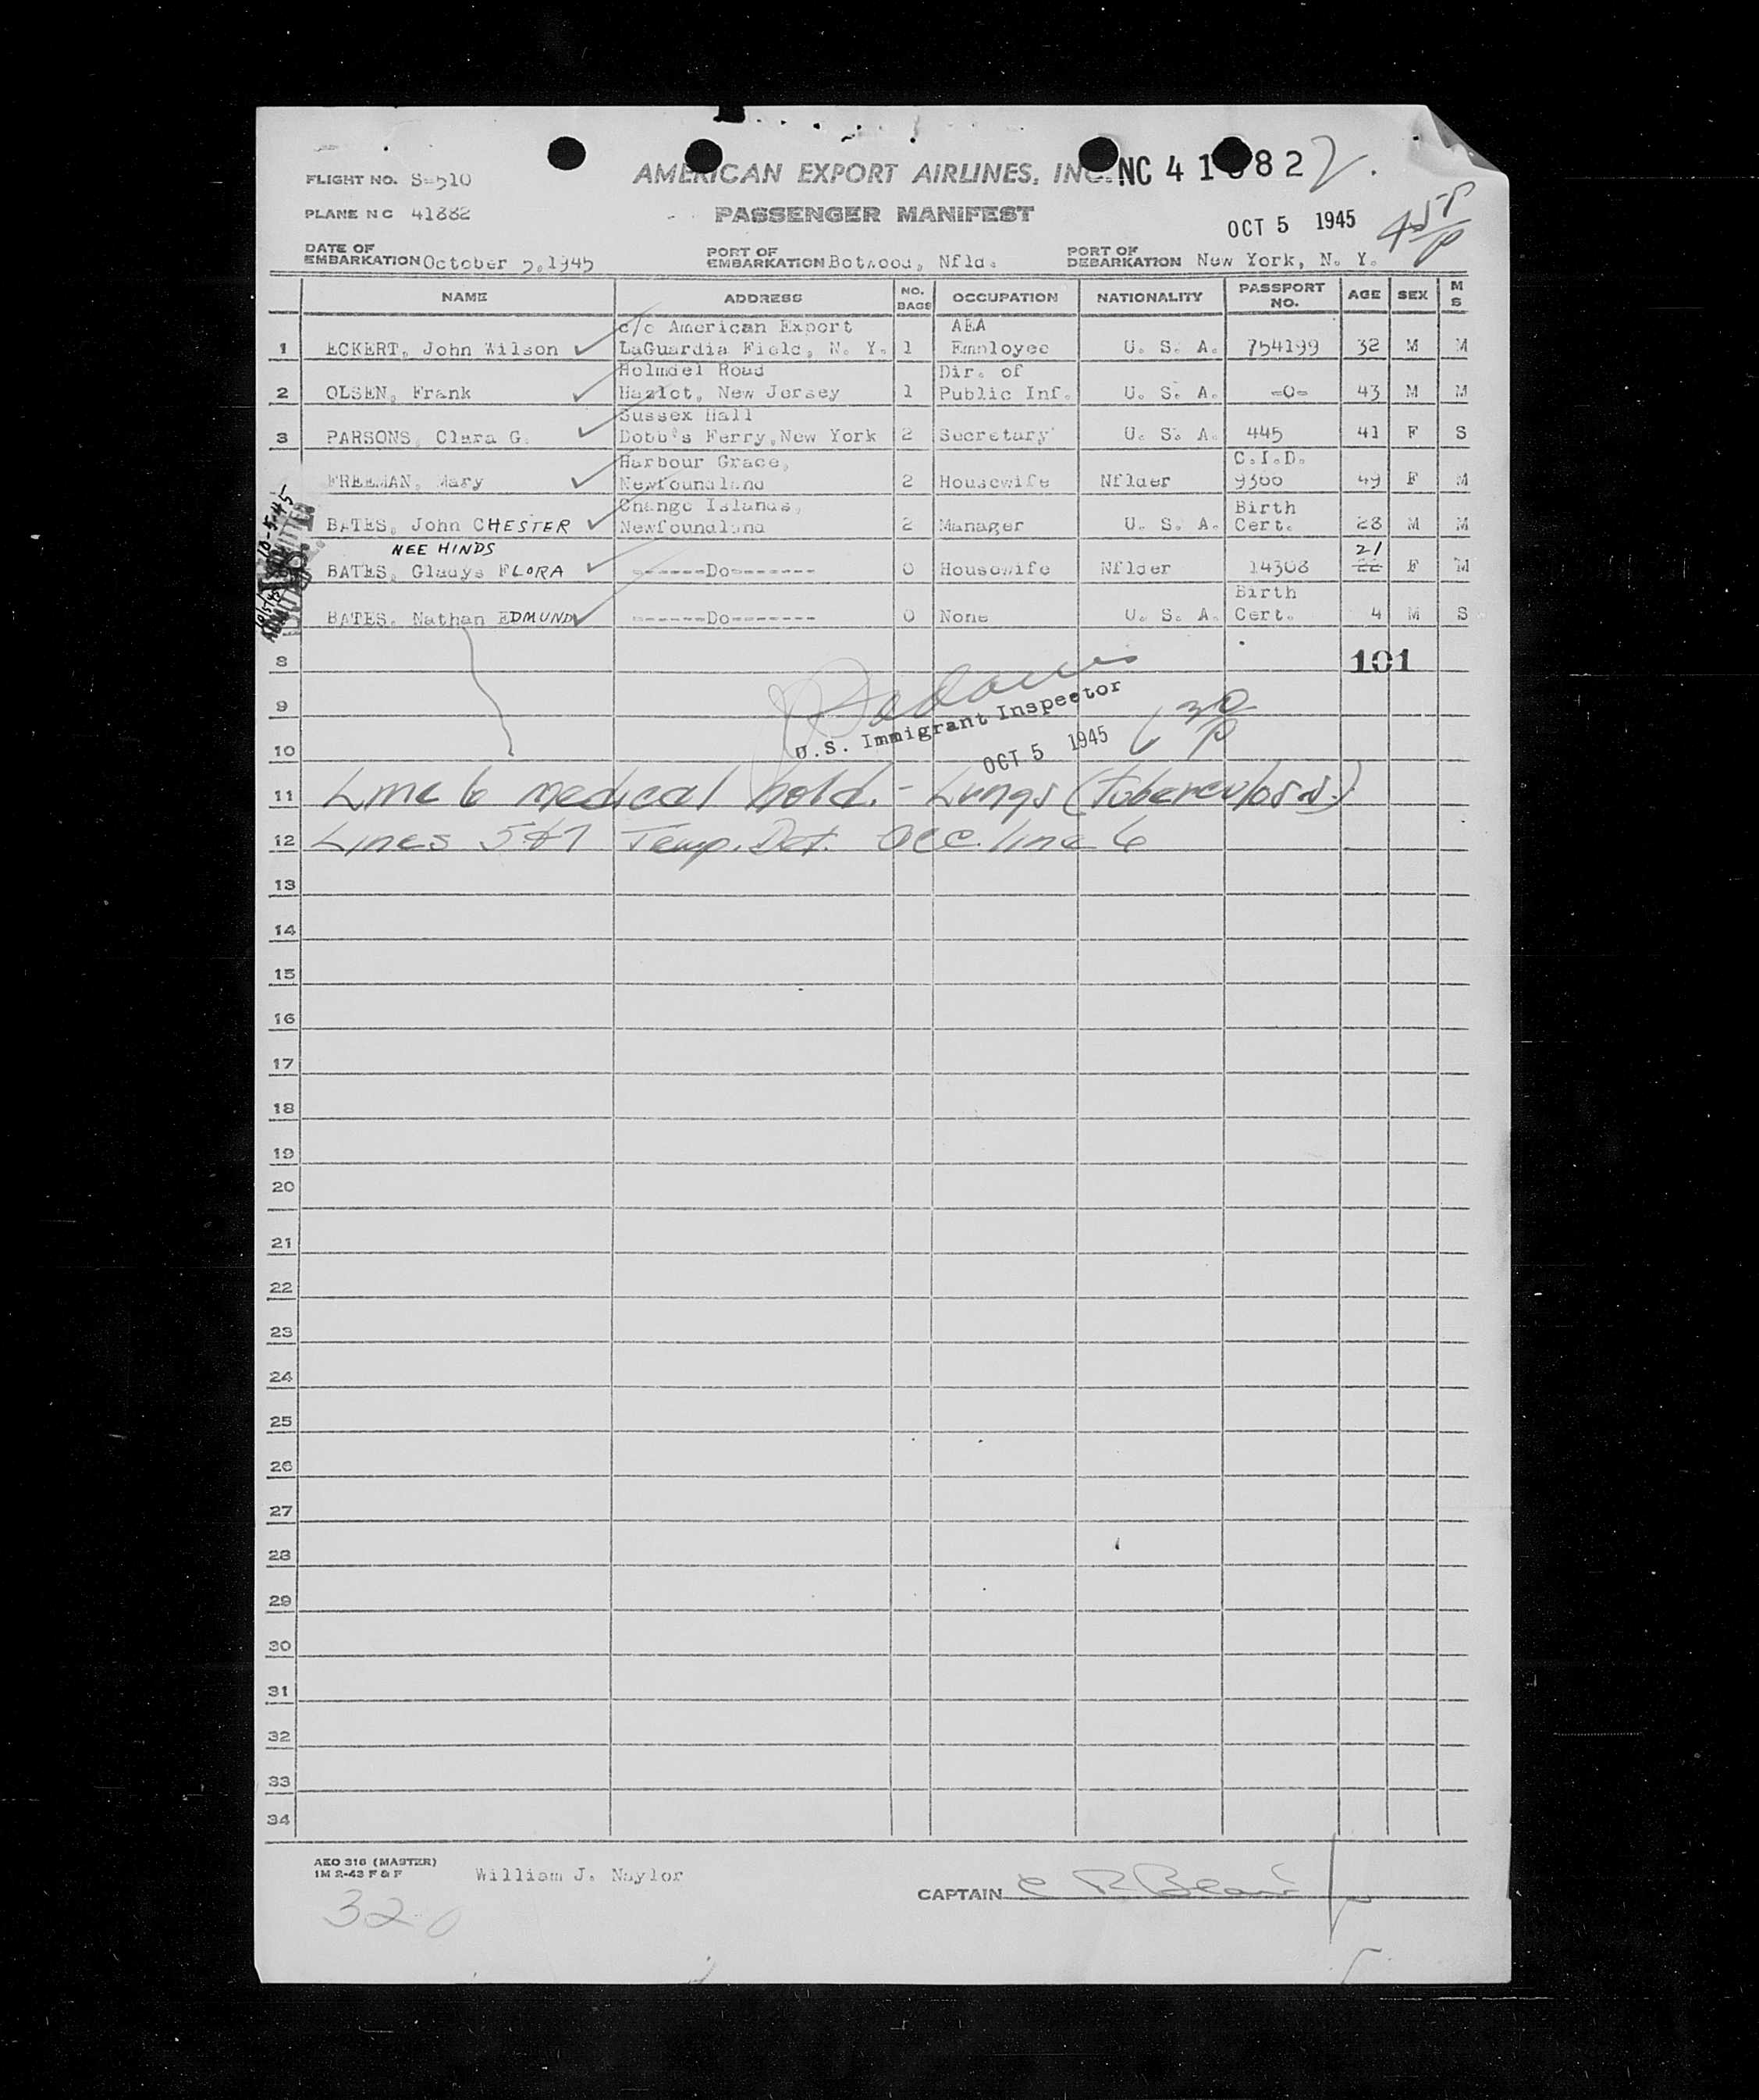 AMERICAN EXPORT AIRLINES, INC. NC 41882
FLIGHT NO. S-510
PLANE NC 41882
PASSENGER MANIFEST
OCT 5 1945
DATE OF EMBARKATION October 5, 1945 PORT OF EMBARKATION Botwood, Nfld. PORT OF DEBARKATION New York, N. Y.
NAME ADDRESS NO. BAGS OCCUPATION NATIONALITY PASSPORT NO. AGE SEX M S
c/o American Export AEA
1 ECKERT, John Wilson LaGuardia Field, N. Y. 1 Employee U. S. A. 754199 32 M M
Holmdel Road Dir. of
2 OLSEN, Frank Hazlet, New Jersey 1 Public Inf. U. S. A. -0- 43 M M
Sussex Hall
3 PARSONS, Clara G. Dobb's Ferry, New York 2 Secretary U. S. A. 445 41 F S
Harbour Grace, C.I.D.
FREEMAN, Mary Newfoundland 2 Housewife Nflder 9360 49 F M
Change Islands, Birth
BATES, John CHESTER Newfoundland 2 Manager U. S. A. Cert. 28 M M
NEE HINDS 21
BATES, Gladys FLORA ------Do------- 0 Housewife Nflder 14308 22 F M
Birth
BATES, Nathan EDMUND ------Do------- 0 None U. S. A. Cert. 4 M S
8 101
9
U.S. Immigrant Inspector
10 OCT 5 1945
11 Line 6 medical hold. - Lungs (tuberculosis)
12 Lines 5&7 Temp. Det. Acc. line 6
13
14
15
16
17
18
19
20
21
22
23
24
25
26
27
28
29
30
31
32
33
34
AEO 316 (MASTER)
1M 2-43 F & F
William J. Naylor
CAPTAIN C R Blair
320